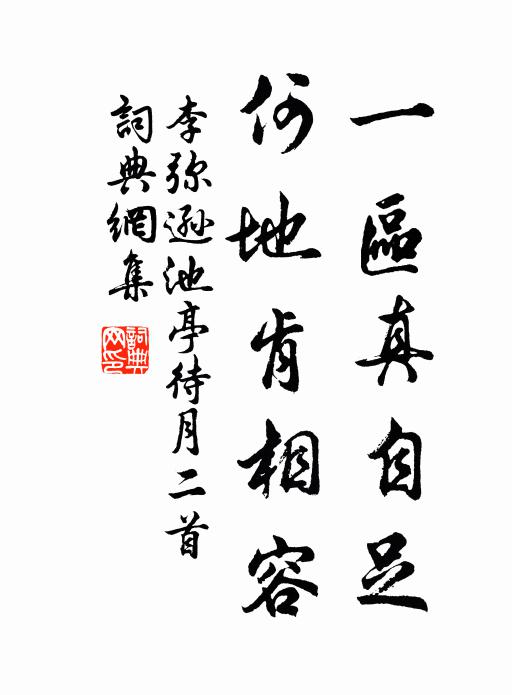 一區真自足
何地肯相容
李弥遜池亭待月二首
詞典網集
詞典网印